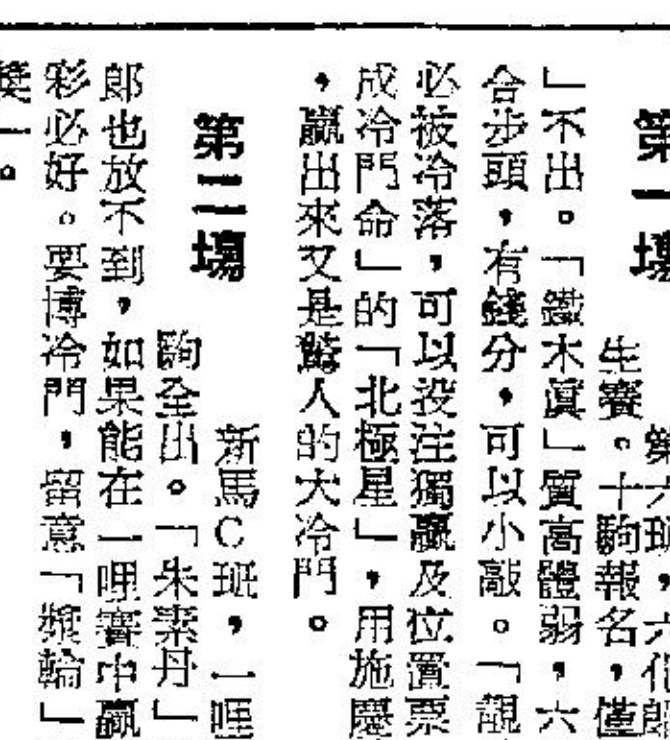 第一場
第六班，六化郎
生賽。十駒報名，僅
」不出。「鐵木眞」質高體弱，六
合步頭，有錢分，可以小敲。「覩
必被冷落，可以投注獨贏及位置票
成冷門命」的「北極星」，用施慶
，贏出來又是驚人的大冷門。
第二場
新馬C班，一哩
駒全出。「朱素丹」
郎也放不到，如果能在一哩賽中贏
彩必好。要博冷門，留意「獎輪」
獎一。